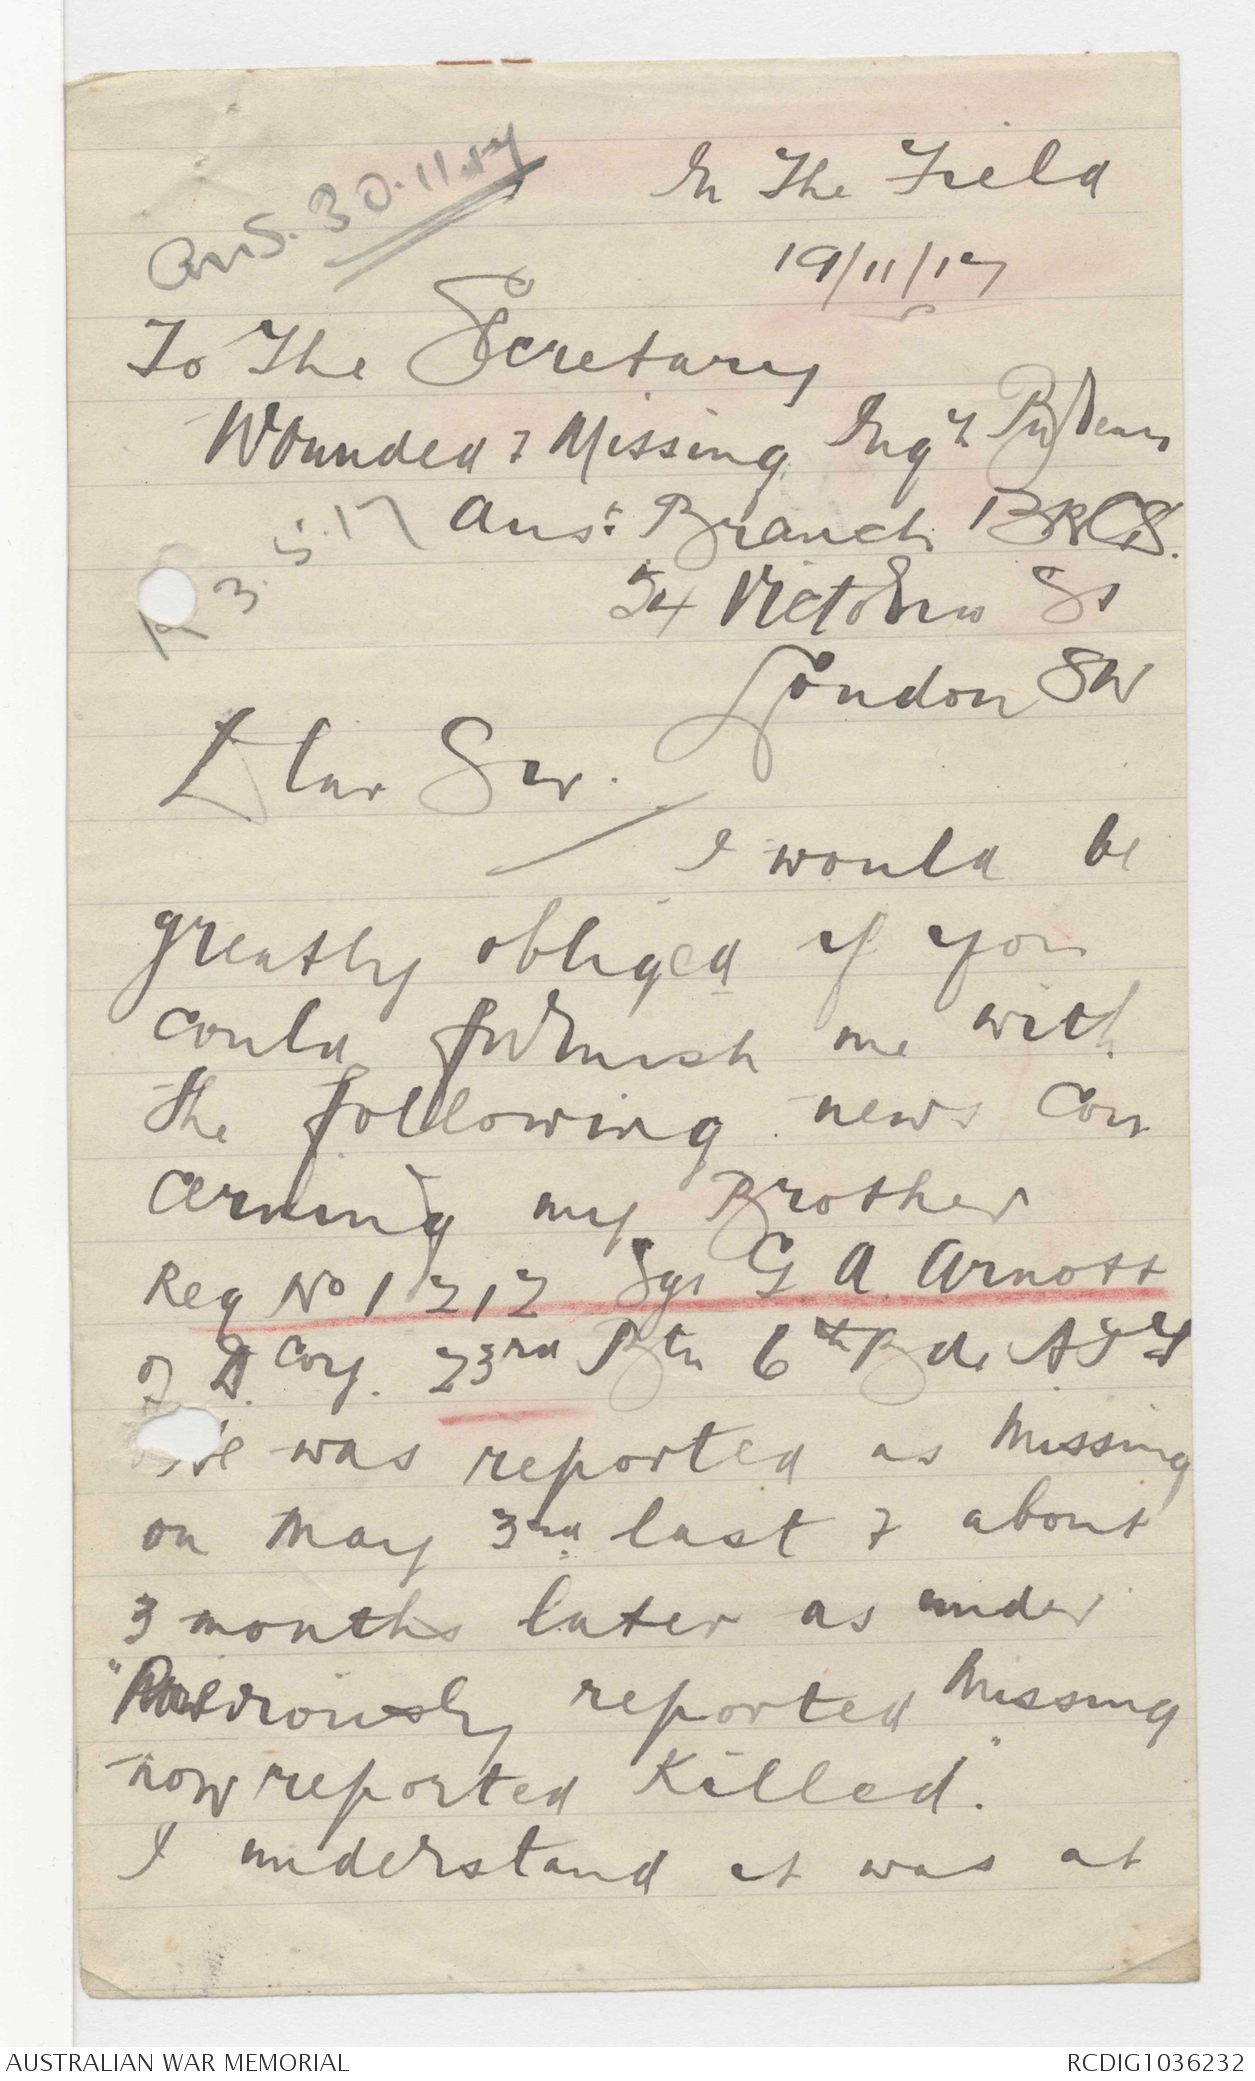 Ans. 30.11.17
In The Field
19/11/17
To The Secretary
Wounded & Missing Enqy
Aus: Branch BRCS.
K 3.5.17
54 Victoria St
London SW
Dear Sir.
I would be
greatly obliged if you
could furnish me with
the following news con
cerning my Brother
Reg No 1717 Sgt G. A. Arnott
of D. Coy. 23rd Btn 6th Bde AIF
He was reported as Missing
on May 3rd last & about
3 months later as under
"Previously reported Missing
now reported Killed."
I understand it was at
AUSTRALIAN WAR MEMORIAL
RCDIG1036232